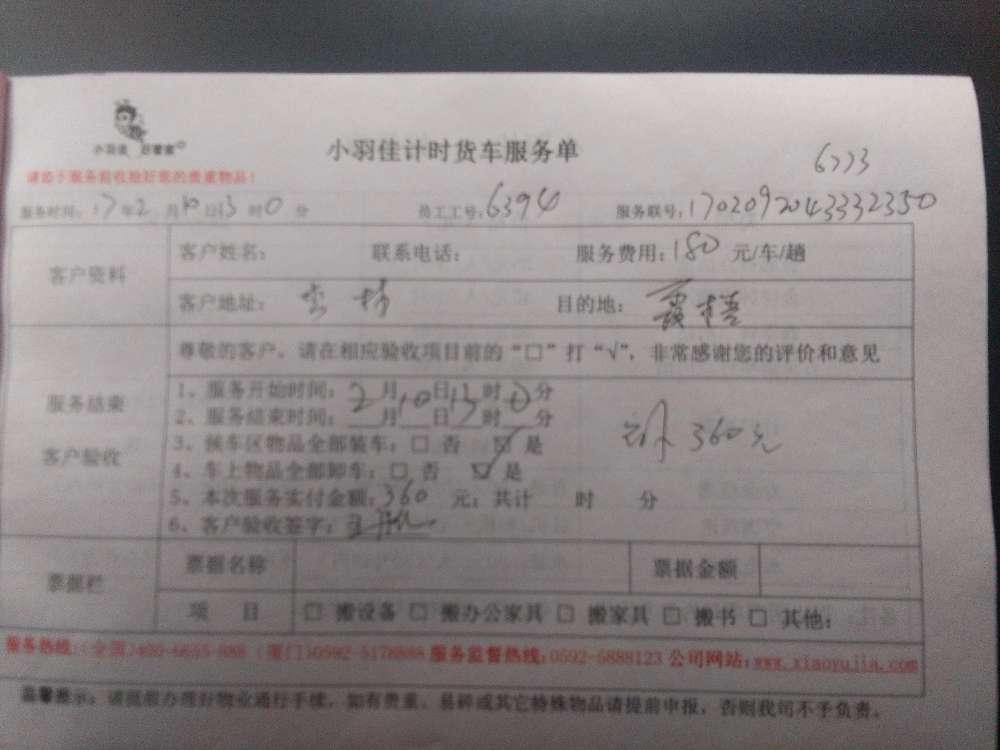 小羽佳 好管家
小羽佳计时货车服务单
6773
请您于服务前收拾好您的贵重物品!
服务时间:17年2月10日13时0分 员工工号:6394 服务联号:1702092043332350
客户资料
客户姓名: 联系电话: 服务费用:180元/车/趟
客户地址: 目的地:
服务结束
客户验收
尊敬的客户,请在相应验收项目前的“□”打“√”,非常感谢您的评价和意见
1、服务开始时间:2月10日13时0分
2、服务结束时间: 月 日 时 分
3、候车区物品全部装车:□ 否 ☑ 是
4、车上物品全部卸车:□ 否 ☑ 是
5、本次服务实付金额:360 元;共计 时 分
6、客户验收签字:
360元
票据栏
票据名称 票据金额
项 目 □ 搬设备 □ 搬办公家具 □ 搬家具 □ 搬书 □ 其他:
服务热线:(全国)400-6655-888 (厦门)0592-5178888 服务监督热线:0592-5888123 公司网站:www.xiaoyujia.com
温馨提示:请提前办理好物业通行手续,如有贵重、易碎或其它特殊物品请提前申报,否则我司不予负责。